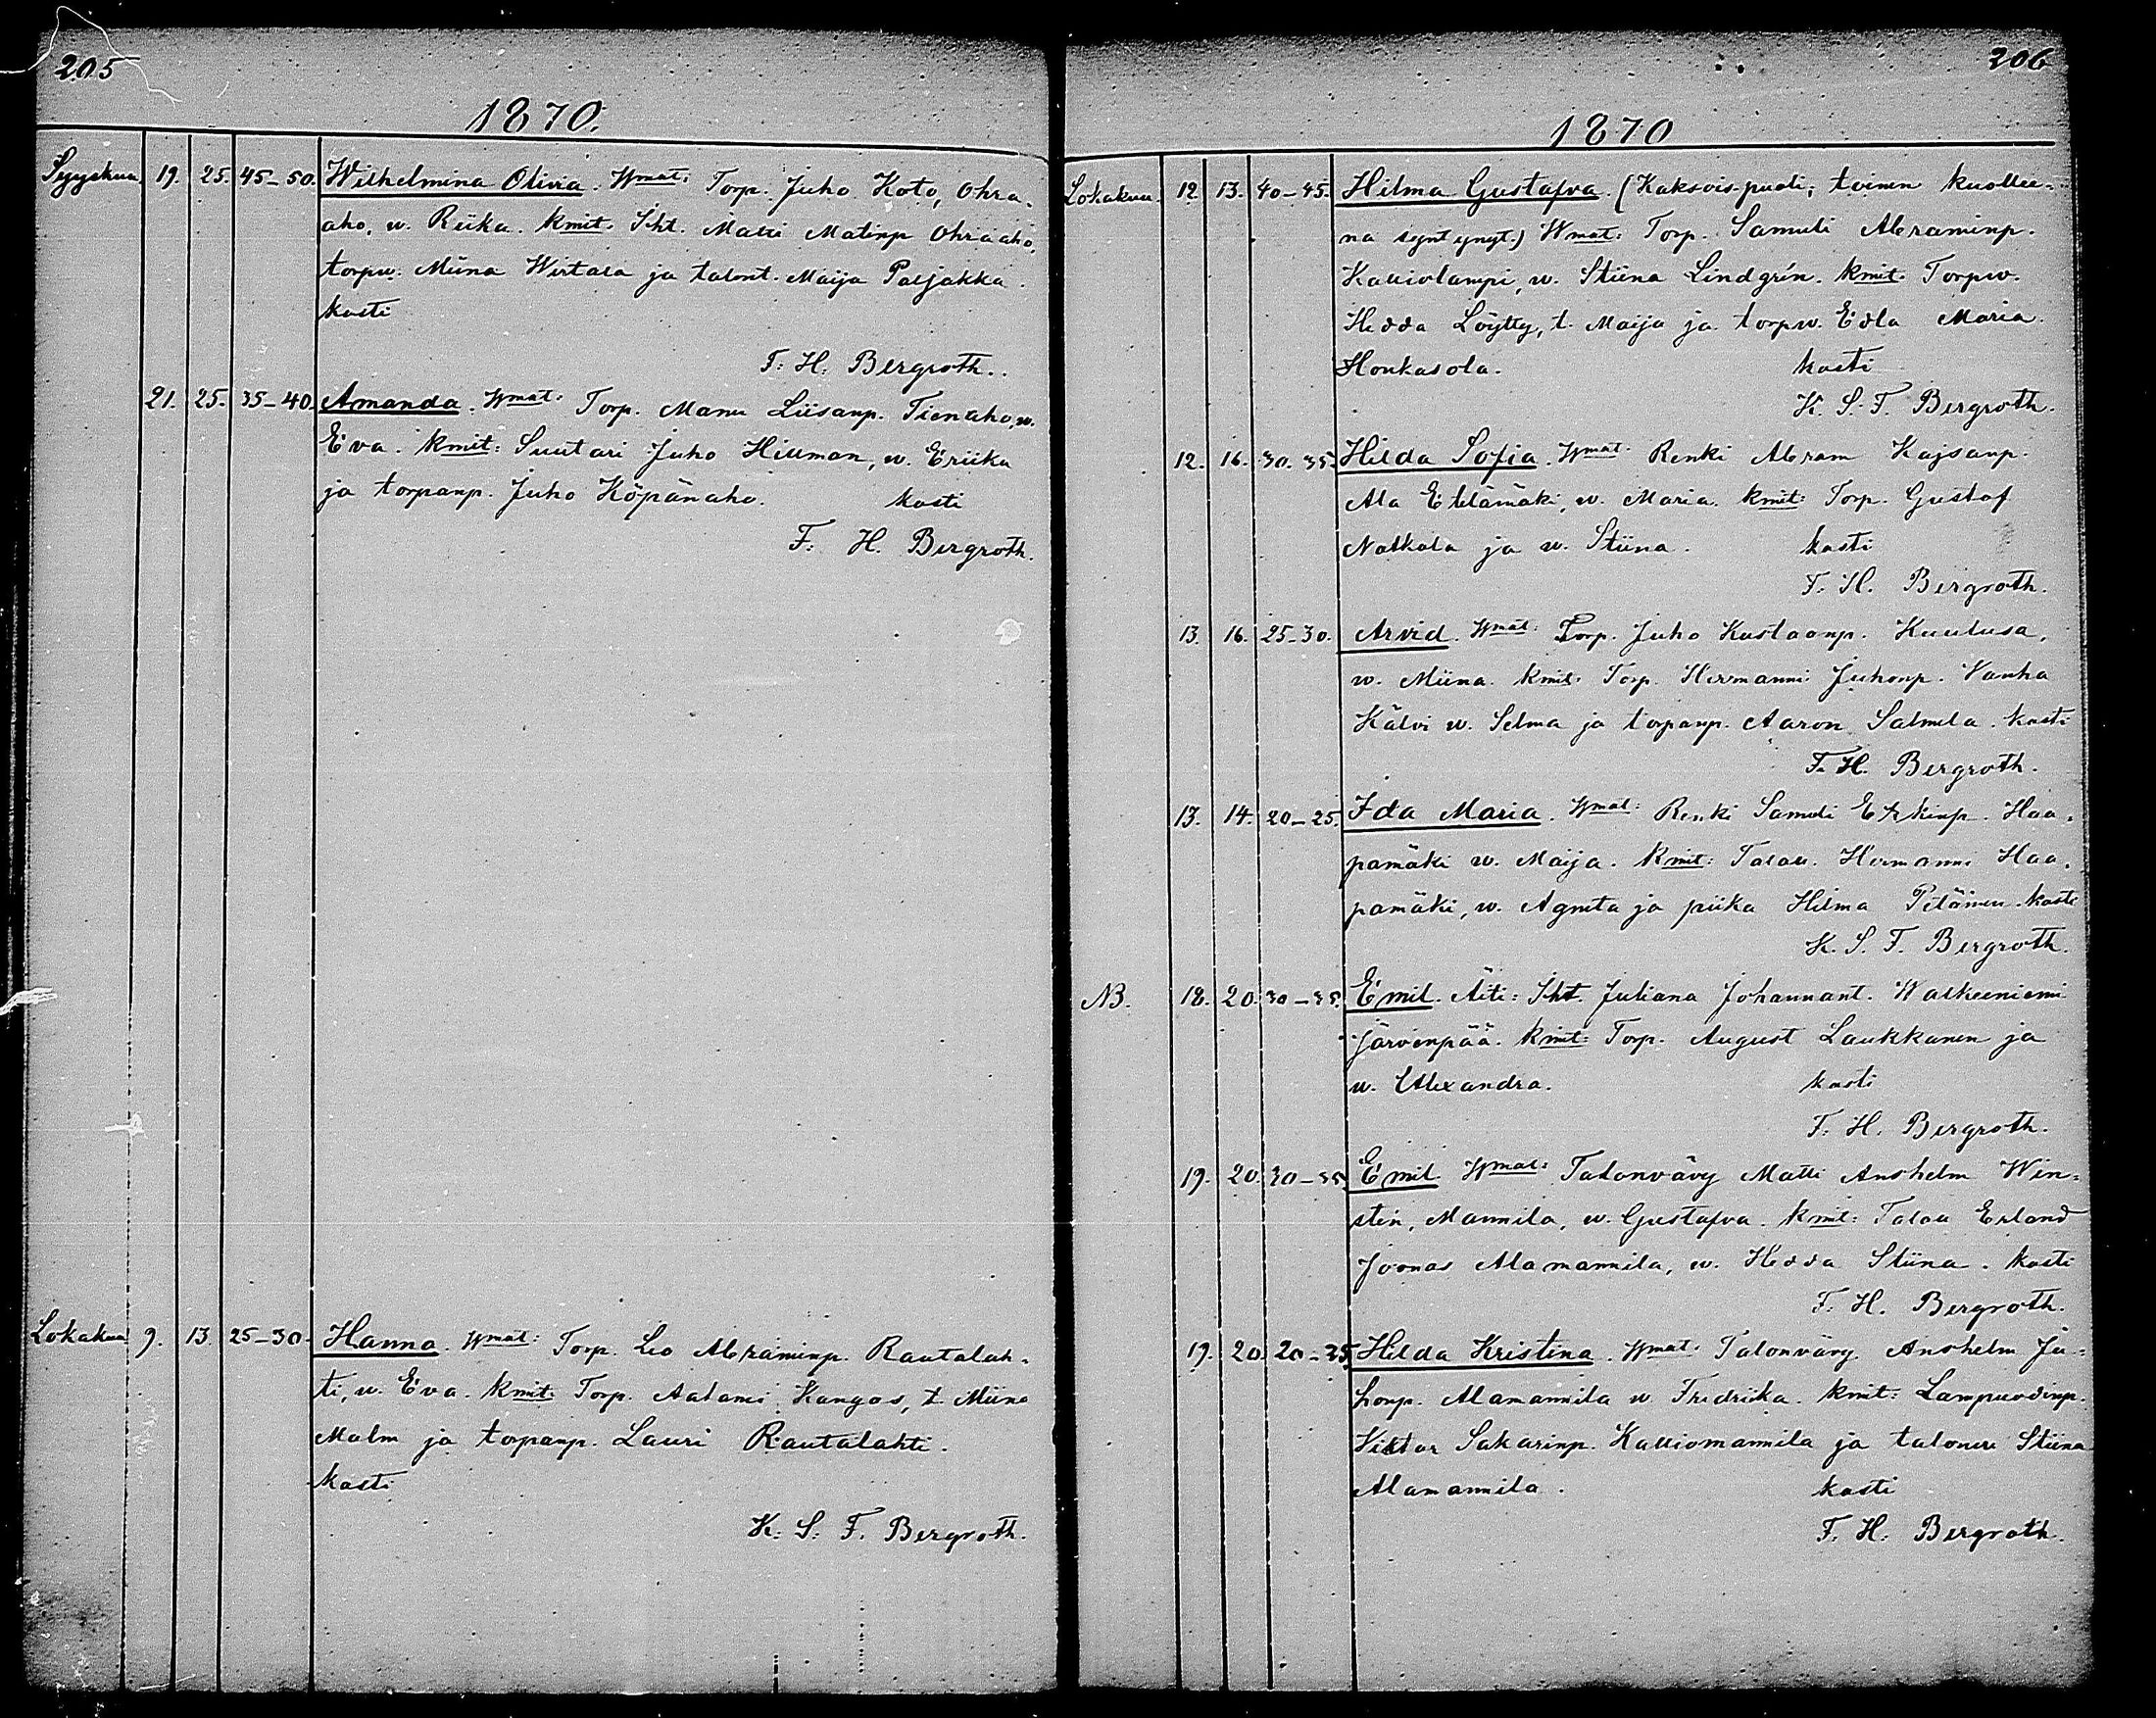 205
1870.
Syyskuu. 19. 25. 45-50. Wilhelmina Olivia. Wmat: Torp. Juho Koto, Ohra-
aho, w. Riika. Kmit. Iht. Matti Matinp Ohraaho,
torpw. Miina Wirtala ja talont. Maija Paljakka.
kasti
F. H. Bergroth.
21. 25. 35-40. Amanda. Wmat: Torp. Manu Liisanp. Tienaho, w.
Eva. Kmit: Suutari Juho Hillman, w. Eriika
ja torpanp. Juho Köpänaho. kasti
F. H. Bergroth.
Lokakuu 9. 13. 25-30. Hanna. Wmat: Torp. Leo Abraminp. Rautalah-
ti, w. Eva. Kmit: Torp. Aatami Kangas, t. Miina
Malm ja torpanp. Lauri Rautalahti.
kasti
K. S. F. Bergroth.
206
1870
Lokakuu. 12. 13. 40-45. Hilma Gustafva. (Kaksois-puoli, toinen kuollee-
na syntynyt.) Wmat: Torp. Samuli Abraminp.
Kalliolampi, w. Stiina Lindgrén. Kmit: Torpw.
Hedda Löytty, t. Maija ja torpw. Edla Maria
Honkasola. kasti
K. S. F. Bergroth.
12. 16. 30. 35. Hilda Sofia. Wmat: Renki Abram Kajsanp.
Ala Etelämäki, w. Maria. Kmit: Torp. Gustaf
Natkala ja w. Stiina. kasti
F. H. Bergroth.
13. 16. 25-30. Arvid. Wmat: Torp. Juho Kustaanp. Kuulusa,
w. Miina. Kmit: Torp. Hermanni Juhonp. Vanha
Kälvi w. Selma ja torpanp. Aaron Salmela. kasti
F. H. Bergroth.
13. 14. 20-25. Ida Maria. Wmat: Renki Samuli Erkinp. Haa-
pamäki w. Maija. Kmit: Talall. Hermanni Haa-
pamäki, w. Agneta ja piika Hilma Petäinen. kasti
K. S. F. Bergroth.
NB. 18. 20. 30-35. Emil. Äiti: Iht. Juliana Johannant. Walkeeniemi
Järvenpää. Kmit: Torp. August Laukkanen ja
w. Alexandra. kasti
F. H. Bergroth.
19. 20. 30-35. Emil. Wmat: Talonvävy Matti Anshelm Win-
stén, Mannila, w. Gustafva. Kmit: Talall Erland
Joonas Alamannila, w. Hedda Stiina. kasti
F. H. Bergroth.
19. 20. 20-35. Hilda Kristina. Wmat: Talonvävy. Anshelm Ju-
honp. Alamannila w Fredrika. Kmit: Lampuodinp.
Viktor Sakarinp. Kalliomannila ja talonem Stiina
Alamannila. kasti
F. H. Bergroth.